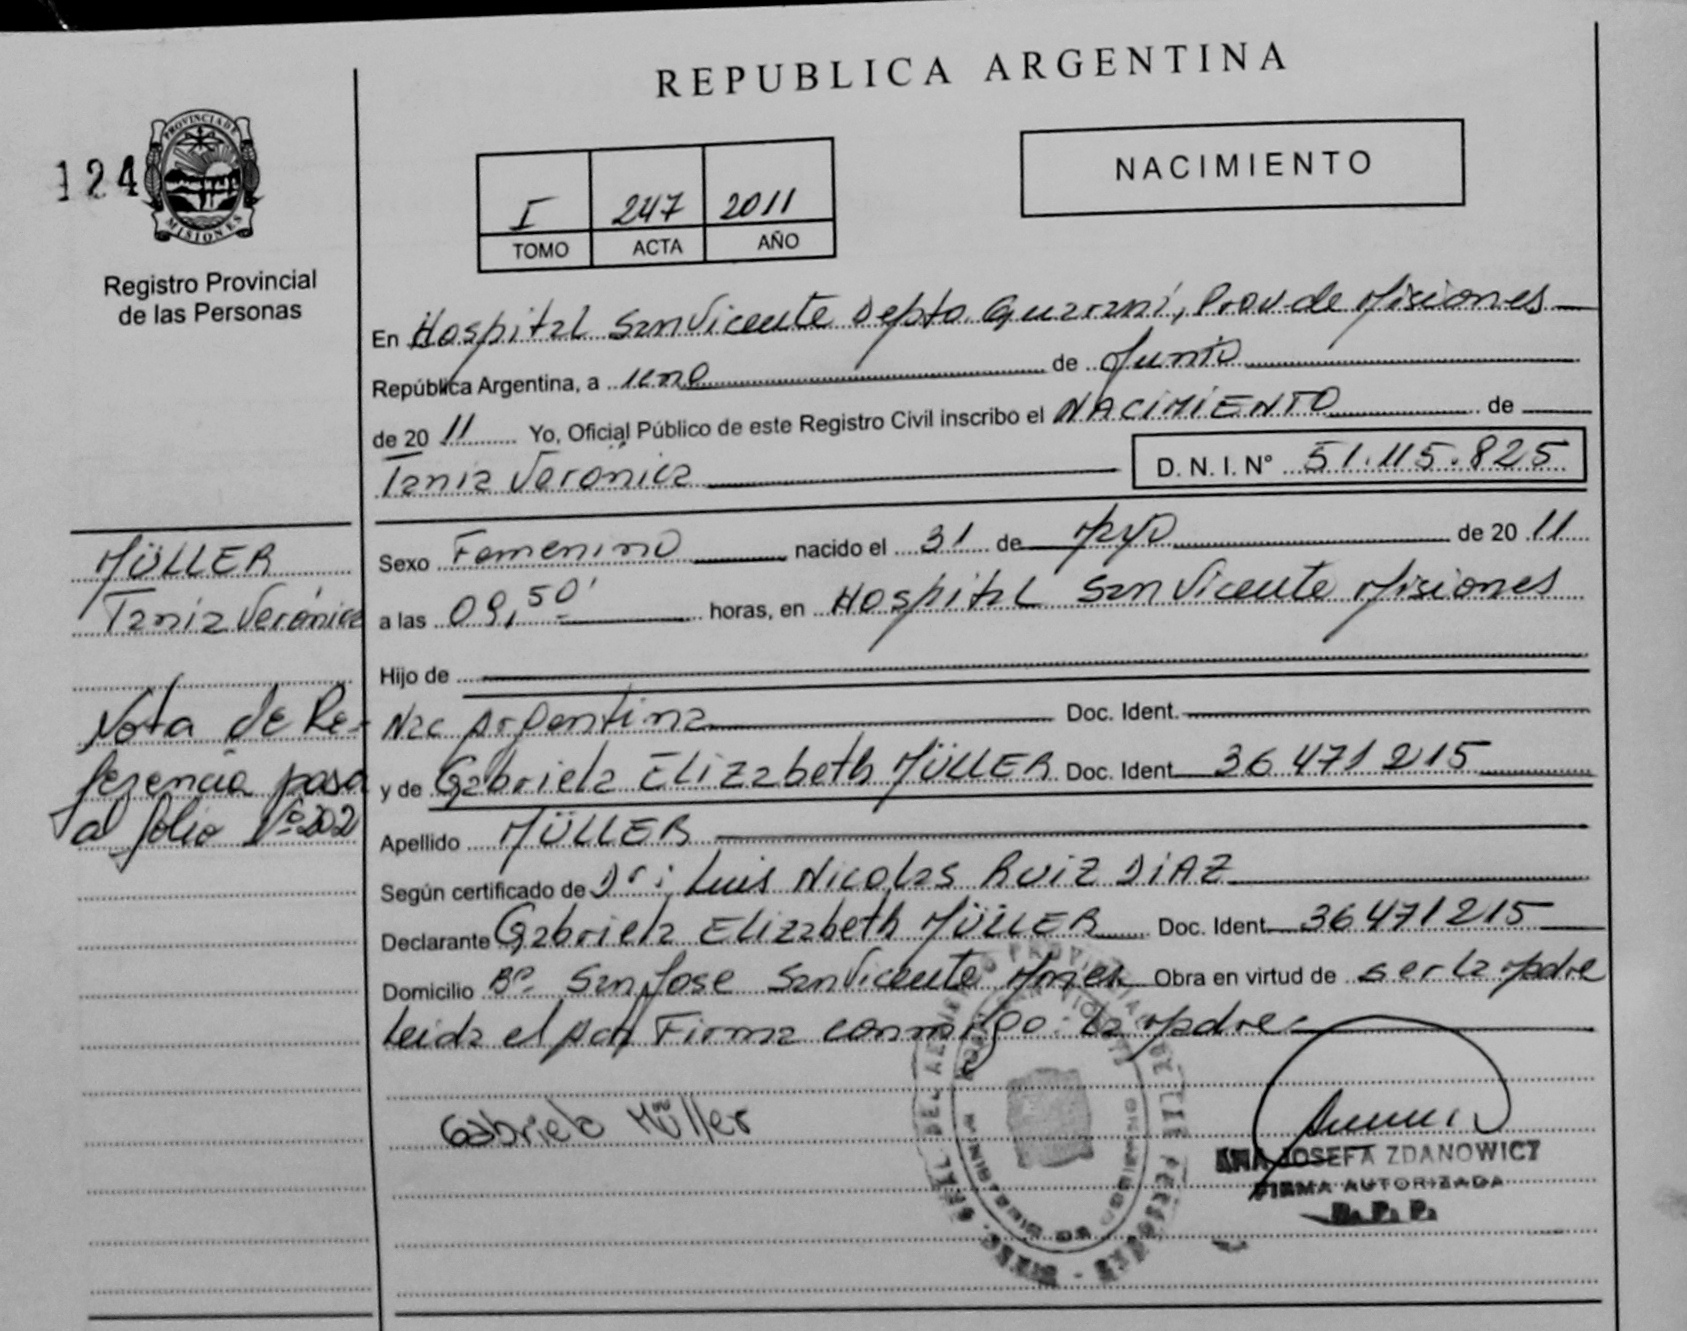 REPUBLICA ARGENTINA
124
PROVINCIA DE
MISIONES
Registro Provincial
de las Personas
I 247 2011
TOMO ACTA AÑO
NACIMIENTO
En Hospital San Vicente Depto. Guaraní, Prov. de Misiones
República Argentina, a uno de Junio
de 2011 Yo, Oficial Público de este Registro Civil inscribo el NACIMIENTO de
Tania Verónica D. N. I. Nº 51.115.825
Sexo Femenino nacido el 31 de Mayo de 2011
a las 09,50' horas, en Hospital San Vicente Misiones
Hijo de
Nac Argentina Doc. Ident.
y de Gabriela Elizabeth MÜLLER Doc. Ident 36 471 215
Apellido MÜLLER
Según certificado de Dr: Luis Nicolas RUIZ DIAZ
Declarante Gabriela Elizabeth MÜLLER Doc. Ident 36471215
Domicilio Bº San Jose San Vicente Mnes Obra en virtud de ser la Madre
Leida el Acta Firma conmigo la Madre
MÜLLER
Tania Verónica
Nota de Re-
ferencia pasa
al folio Nº 202
Gabriela Müller
ANA JOSEFA ZDANOWICZ
FIRMA AUTORIZADA
R. P. P.